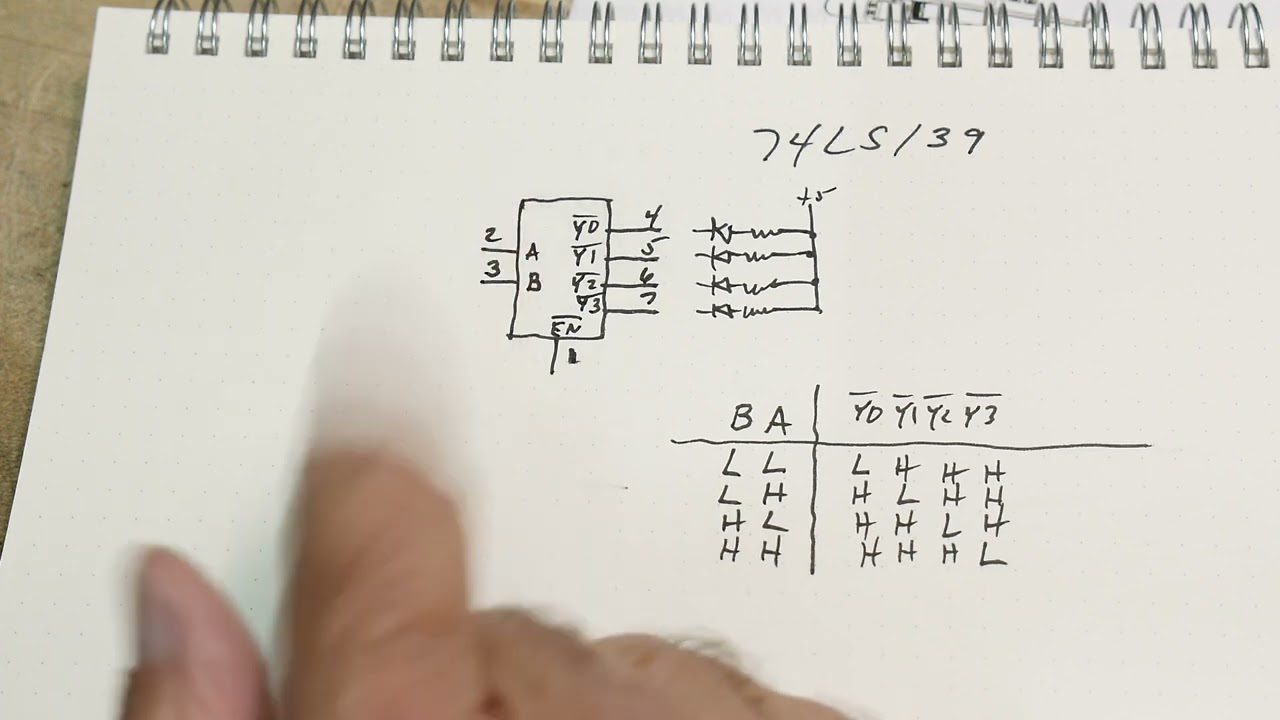 74LS139
+5
2 A Y0 4
Y1 5
3 B Y2 6
Y3 7
EN
1
B A Y0 Y1 Y2 Y3
L L L H H H
L H H L H H
H L H H L H
H H H H H L